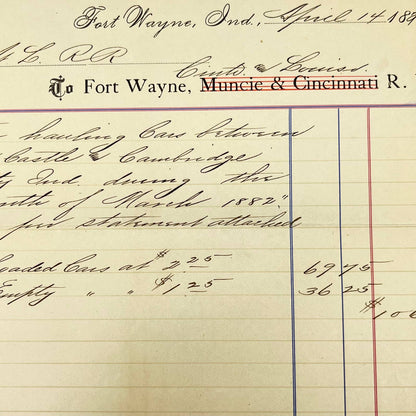 Fort Wayne, Ind., April 14 188
L. R R
Cinti & Louisv.
To Fort Wayne, Muncie & Cincinnati R.
hauling Cars between
Castle & Cambridge
Ind. during the
of March 1882.
per statement attached
Loaded Cars at $2.25 69 75
Empty " " $1.25 36 25
$106